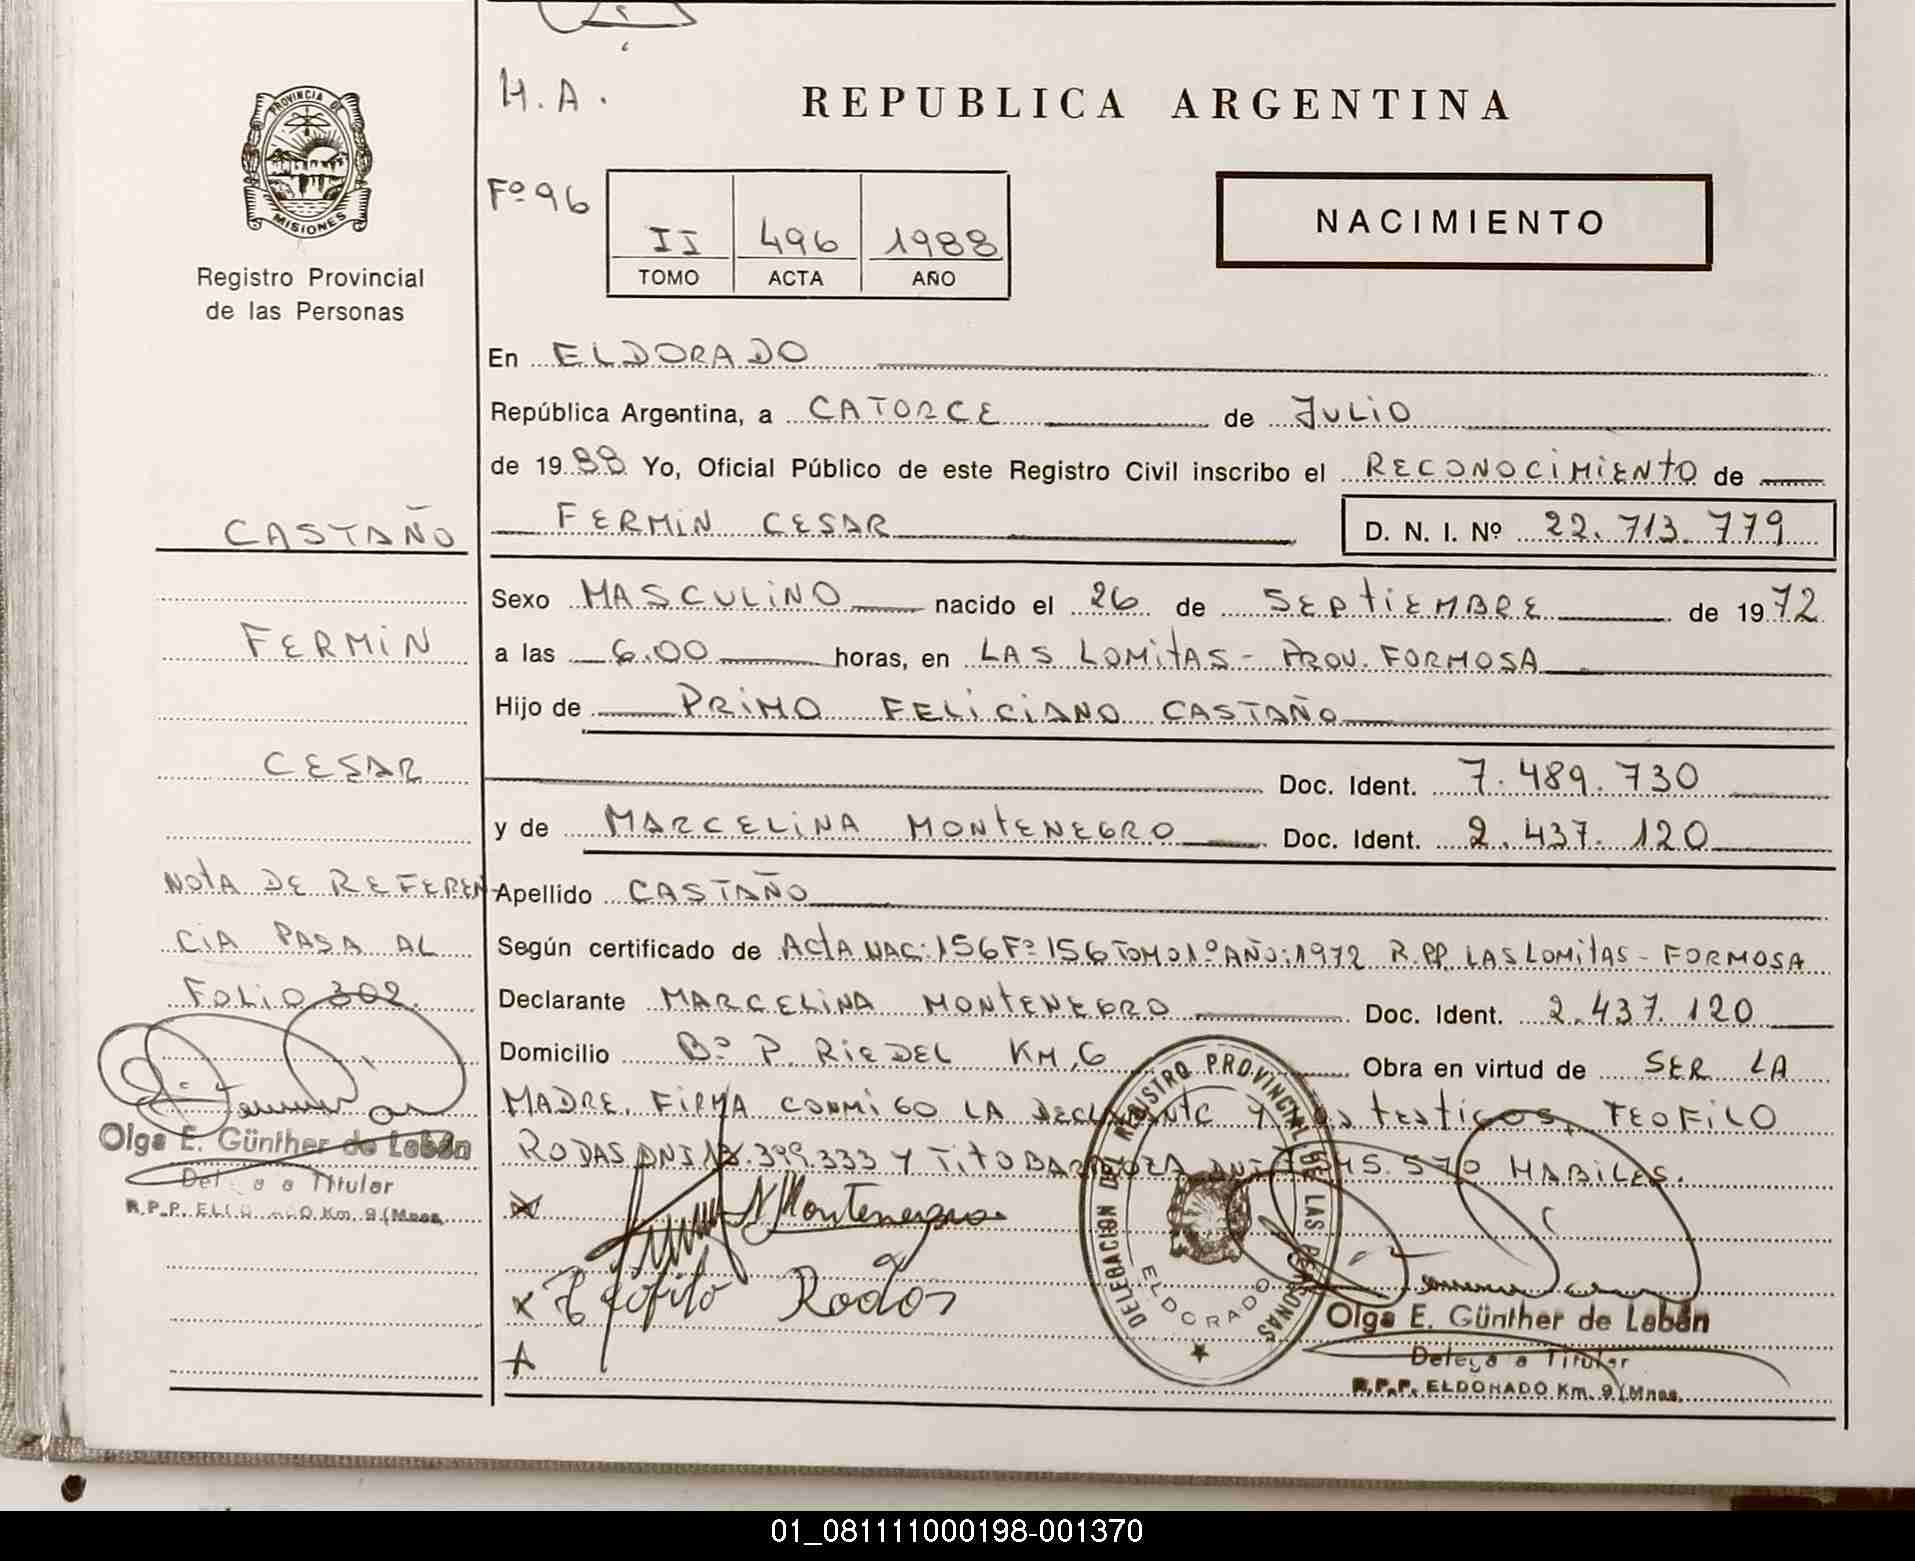 H.A.
REPUBLICA ARGENTINA
PROVINCIA DE
MISIONES
Registro Provincial
de las Personas
Fº 96
II 496 1988
TOMO ACTA AÑO
NACIMIENTO
En ELDORADO
República Argentina, a CATORCE de JULIO
de 1988 Yo, Oficial Público de este Registro Civil inscribo el RECONOCIMIENTO de
FERMIN CESAR D. N. I. Nº 22.713.779
Sexo MASCULINO nacido el 26 de SEPTIEMBRE de 1972
a las 6.00 horas, en LAS LOMITAS - PROV. FORMOSA
Hijo de PRIMO FELICIANO CASTAÑO
Doc. Ident. 7.489.730
y de MARCELINA MONTENEGRO Doc. Ident. 2.437.120
Apellido CASTAÑO
Según certificado de ACTA NAC: 156 Fº 156 TOMO 1º AÑO: 1972 R.PP. LAS LOMITAS - FORMOSA
Declarante MARCELINA MONTENEGRO Doc. Ident. 2.437.120
Domicilio Bº P. RIEDEL KM, 6 Obra en virtud de SER LA
MADRE. FIRMA CONMIGO LA DECLARANTE Y LOS TESTIGOS, TEOFILO
RODAS DNI 399.333 Y TITO BARBOZA DNI 45.570 HABILES.
Montenegro
Teofilo Rodas
DELEGACION DEL REGISTRO PROVINCIAL DE LAS PERSONAS
ELDORADO
Olga E. Günther de Labán
Delegada Titular
R.P.P. ELDORADO Km. 9 (Mnes.
CASTAÑO
FERMIN
CESAR
NOTA DE REFEREN-
CIA PASA AL
FOLIO 302.
Olga E. Günther de Labán
Delegada Titular
R.P.P. ELDORADO Km. 9 (Mnes.
01_081111000198-001370